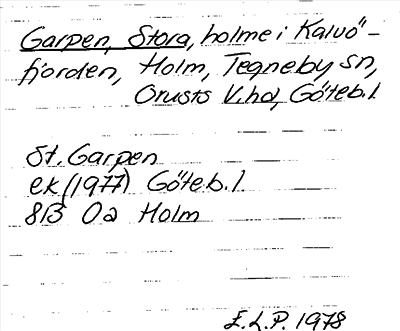 Garpen, Stora, holme i Kalvö-
fjorden, Holm, Tegneby sn,
Orusts V.hd, Göteb.l.
St. Garpen
ek (1977) Göteb.l.
8B 0a Holm
E.L.P. 1978